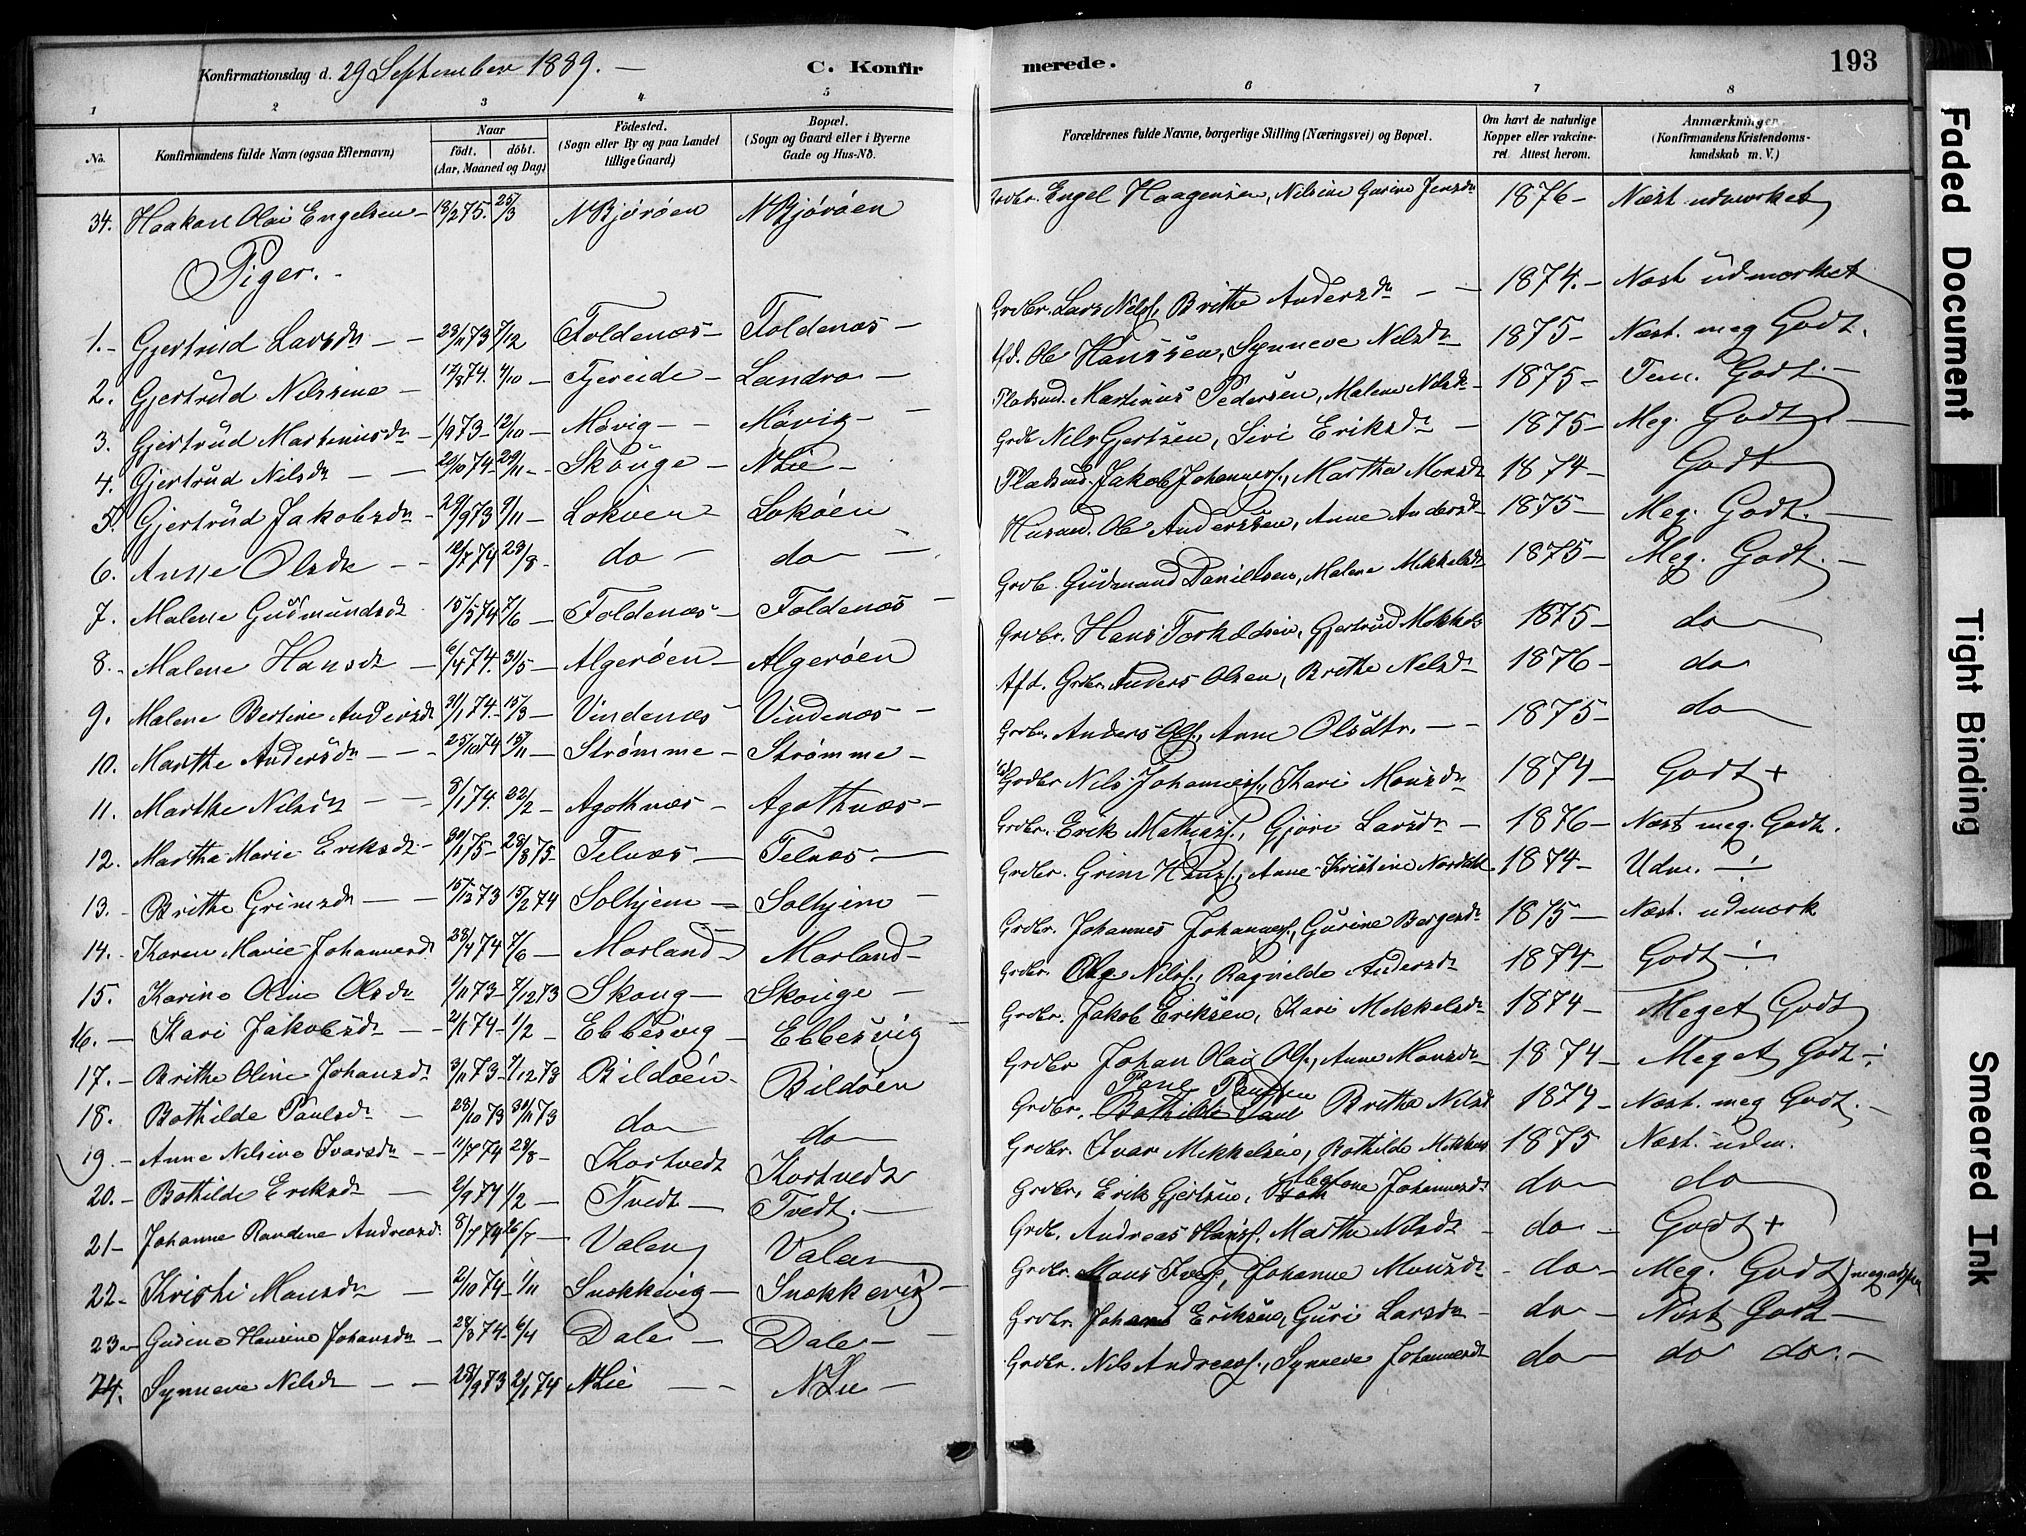 Konfirmationsdag d. 29 September 1889. — C. Konfirmerede. 193
1 2 3 4 5 6 7 8
No. Konfirmandens fulde Navn (ogsaa Efternavn) Naar födt. döbt. (Aar, Maaned og Dag) Födested. (Sogn eller By og paa Landet tillige Gaard) Bopæl. (Sogn og Gaard eller i Byerne Gade og Hus-No.) Forældrenes fulde Navne, borgerlige Stilling (Næringsvei) og Bopæl. Om havt de naturlige Kopper eller vakcineret. Attest herom. Anmærkninger. (Konfirmandens Kristendomskundskab m. V.)
34. Haakon Olai Engelsen 18/2 75. 25/3 N Björöen N Björöen Grdbr. Engel Haagensen, Nilsine Gurine Jensdr 1876 Næst udmærket
Piger.
1. Gjertrud Larsdr 23/11 73 7/12 Foldenæs Foldenæs Grdbr. Lars Nilss, Brithe Andersdr 1874. Næst udmærket
2. Gjertrud Nilssine 12/8 74. 4/10 Fjereide Landro Afd. Ole Hanssen, Synneve Nilsdr 1875 Næst. meg Godt.
3. Gjertrud Martinusdr 1/9 73 12/10 Møvig Møvig Pladsmd. Martinus Pedersen, Malene Nilsdr 1875 Tem. Godt.
4. Gjertrud Nilsdr 20/10 74 29/11 Skouge N Lie Grdb Nils Gjertsen, Siri Eriksdr 1875 Meg. Godt
5. Gjertrud Jakobsdr 29/9 73 9/11 Lokøen Lokøen Pladsmd. Jakob Johanness., Martha Monsdr 1874 Godt
6. Anne Olsdr 12/7 74 23/8 do do Husmd. Ole Anderssen, Anne Andersdr 1875 Meg. Godt.
7. Malene Gudmundsdr 15/5 74 7/6 Foldenæs Foldenæs Grdb. Gudmund Danielsen, Malene Mikkelsdr 1875 Meg. Godt.
8. Malene Hansdr 6/4 74. 31/5 Algerøen Algerøen Grdbr. Hans Torkildsen, Gjertrud Mikkels 1875 do
9. Malene Bertine Andersdr 31/1 74. 15/3 Vindenæs Vindenæs Afd. Grdbr. Anders Olsen, Brithe Nilsdr 1876 do
10. Marthe Andersdr 25/10 74 15/11 Strømme Strømme Grdbr. Anders Ols., Anne Olsdtr. 1875 do
11. Marthe Nilsdr 8/1 74. 22/2 Agothnæs Agothnæs Grdbr Nils Johanness., Kari Monsdr 1874 Godt +
12. Martha Marie Eriksdr 30/1 75 28/3 75 Telnæs Telnæs Grdbr. Erik Mathiass., Gjöri Larsdr 1876 Næst meg. Godt.
13. Brithe Grimsdr 15/12 73 15/2 74 Solhjem Solhjem Grdbr. Grim Hanss., Anne Kristine 1874 Udm. ÷
14. Karen Marie Johannesdr 28/4 74 7/6 Morland Morland Grdbr. Johannes Johanness., Gurine Bergesdr 1875 Næst. udmærk
15. Karine Oline Olsdr 1/11 73 7/12 73 Skoug Skouge Grdbr. Ole Nilss., Ragnilde Andersdr 1874 Godt ÷
16. Kari Jakobsdr 2/1 74 1/2 Ebbesvig Ebbesvig Grdbr. Jakob Eriksen, Kari Mikkelsdr 1874 Meget Godt
17. Brithe Oline Johansdr 3/11 73 7/12 73 Bildøen Bildøen Grdbr Johan Olai Ols., Anne Monsdr 1874 Meget Godt ÷
18. Bothilde Paulsdr 28/10 73 30/11 73 do do Grdbr. Brithe Nilsd 1874 Næst. meg Godt.
19. Anne Nilsine Ivarsdr 11/7 74 23/8 Kortvedt Kortvedt Grdbr. Ivar Mikkelsen, Bothilde Mikkels 1875 Næst. udm.
20. Bothilde Eriksdr 2/9 74 1/2 Tvedt Tvedt. Grdbr. Erik Gjertsen, Johannesdr do do
21 Johanne Randine Andreasd. 8/7 74 26/7 Valen Valen Grdb. Andreas Hanss. Martha Nilsdr do Godt +
22 Kristi Monsdr 2/10 74 1/11 Snekkevig Snekkevig Grdbr. Mons Ivers, Johanne Monsdr do Meg. Godt
23 Gudine Hansine Johansdr 28/3 74 6/4 Dale Dale Grdbr. Johans Eriksen, Guri Larsdr do Næst Godt
24. Synneve Nilsdr 28/9 73 2/1 74 N Lie N Lie Grdbr. Nils Andreass., Synneve Johannesdr do do do.
Faded Document
Tight Binding
Smeared Ink